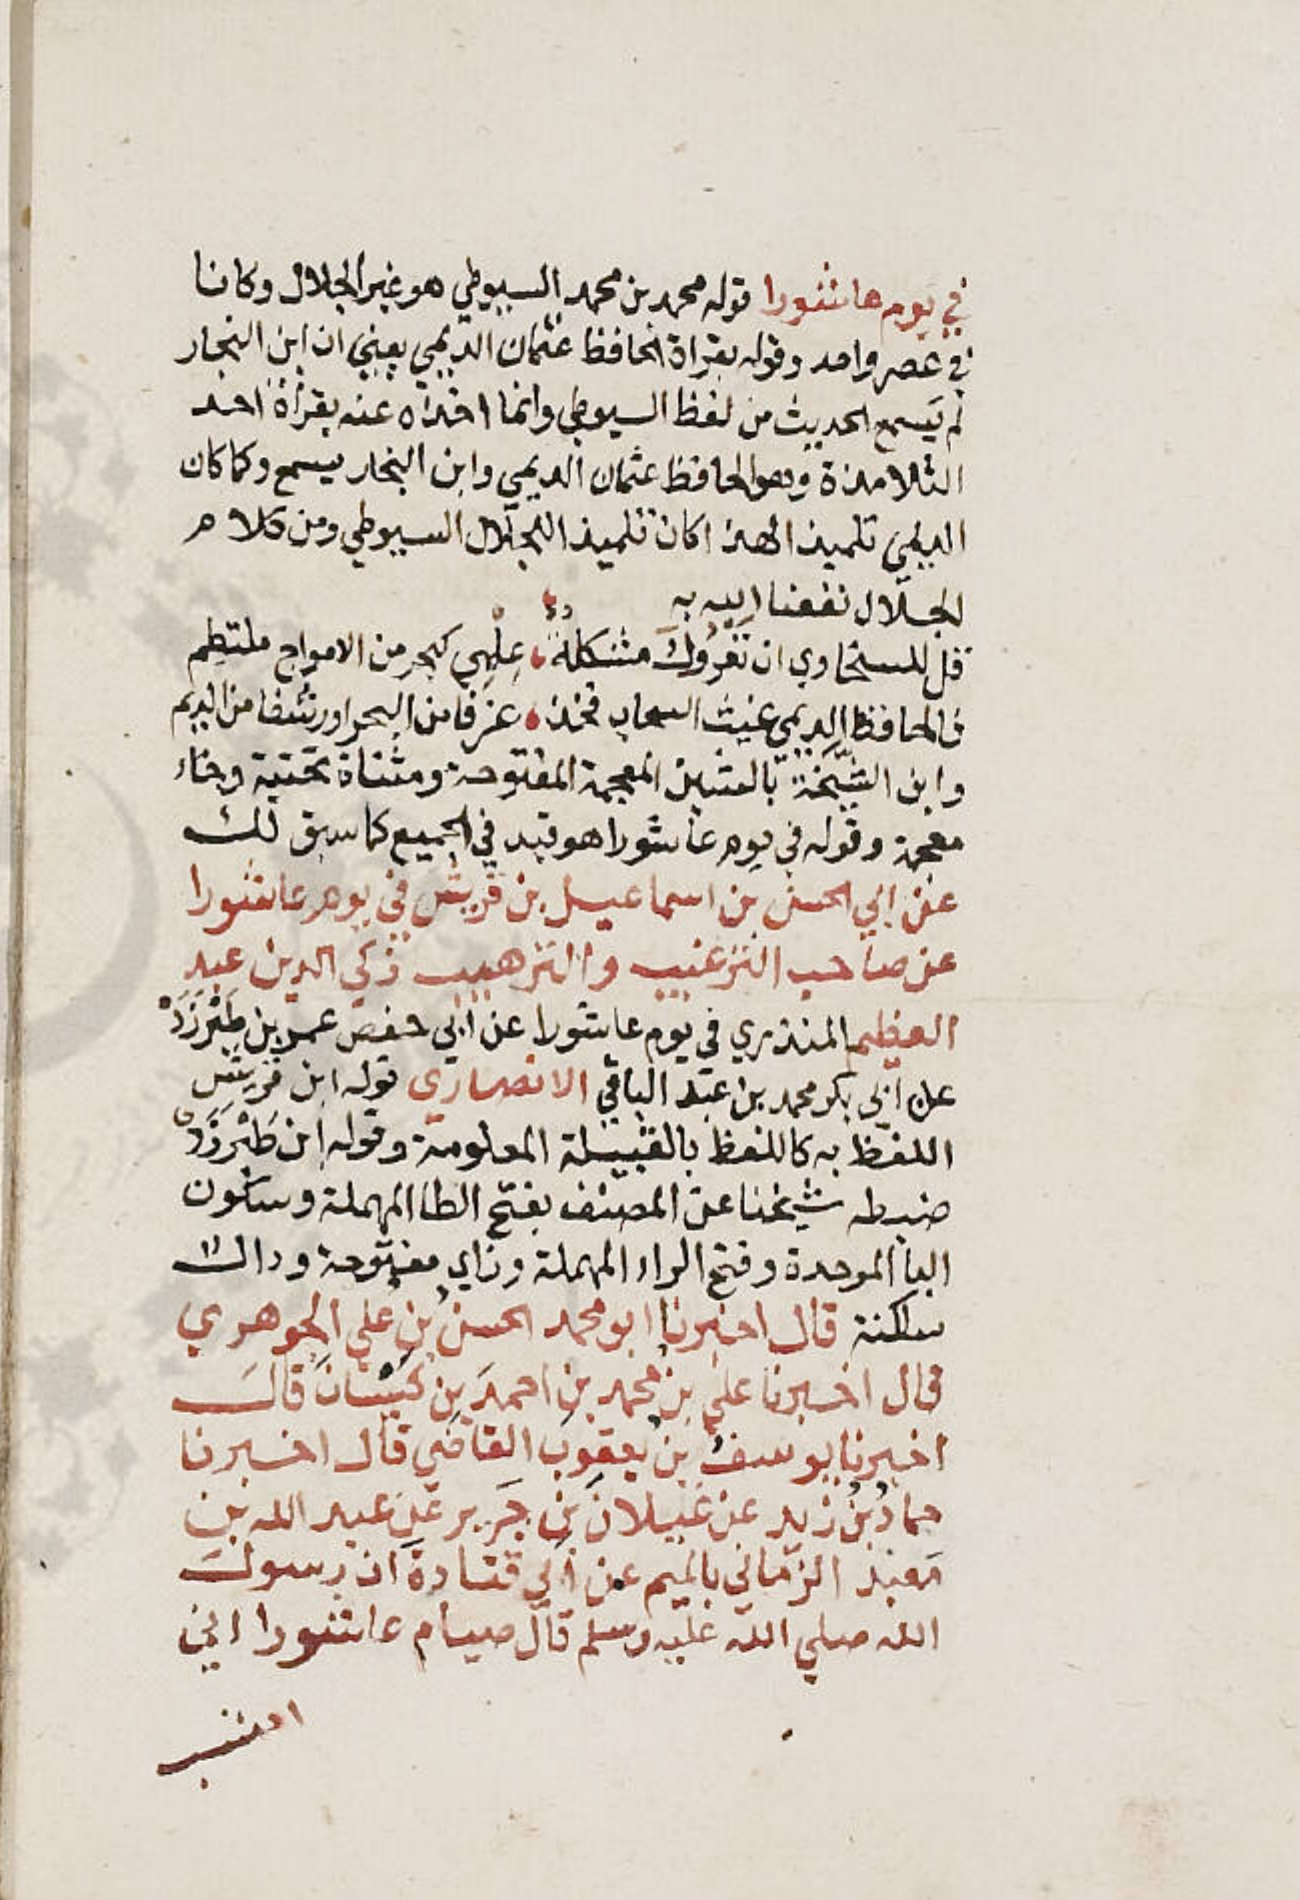 في يوم عاشورا قوله محمد بن محمد السيوطي هو غير الجلال وكانا
في عصر واحد وقوله بقراة الحافظ عثمان الديمي يعني ان ابن النجار
لم يسمع الحديث من لفظ السيوطي وانما اخذاه عنه بقراة احد
التلامذة وهو الحافظ عثمان الديمي وابن النجار يسمع وكما كان
الديمي تلميذ الهذا كان تلميذا للجلال السيوطي ومن كلام
الجلال نفعنا الله به
قل للسخاوي ان تَعْرُوكَ مشكلة علمي كبحر من الامواج ملتطم
فالحافظ الديمي غيث السحاب فخذ غرفا من البحر او رشفا من الديم
وابن الشيخة بالشين المعجمة المفتوحة ومثناة تحتية وخاء
معجمة وقوله في يوم عاشورا هو قيد في الجميع كما سبق لك
عن ابي الحسن بن اسماعيل بن قريش في يوم عاشورا
عن صاحب الترغيب والترهيب زكي الدين عبد
العظيم المنذري في يوم عاشورا عن ابي حفص عمر بن طَبْرزَدْ
عن ابي بكر محمد بن عبد الباقي الانصاري قوله ابن قريش
اللفظ به كاللفظ بالقبيلة المعلومة وقوله ابن طَبْرَزَدْ
ضبطه شيخنا عن المصنف بفتح الطا المهملة وسكون
البا الموحدة وفتح الراء المهملة وزاي مفتوحة ودال
ساكنة قال اخبرنا ابو محمد الحسن بن علي الجوهري
قال اخبرنا علي بن محمد بن احمد بن كَيْسَانَ قال
اخبرنا يوسف بن يعقوب القاضي قال اخبرنا
حماد بن زيد عن غيلان بن جَرير عن عبد الله بن
مَعبد الزماني بالميم عن ابي قتادة ان رسول
الله صلي الله عليه وسلم قال صيام عاشورا اني
احتسب